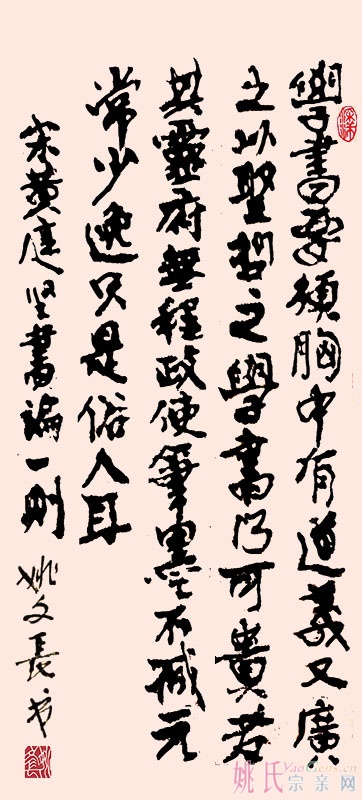 學書要須胸中有道義又廣
之以聖哲之學書乃可貴若
其靈府無程政使筆墨不減元
常少逸只是俗人耳
宋黄庭坚書論一則 姚文長书
姚氏 YaoGens.cn
宗亲网